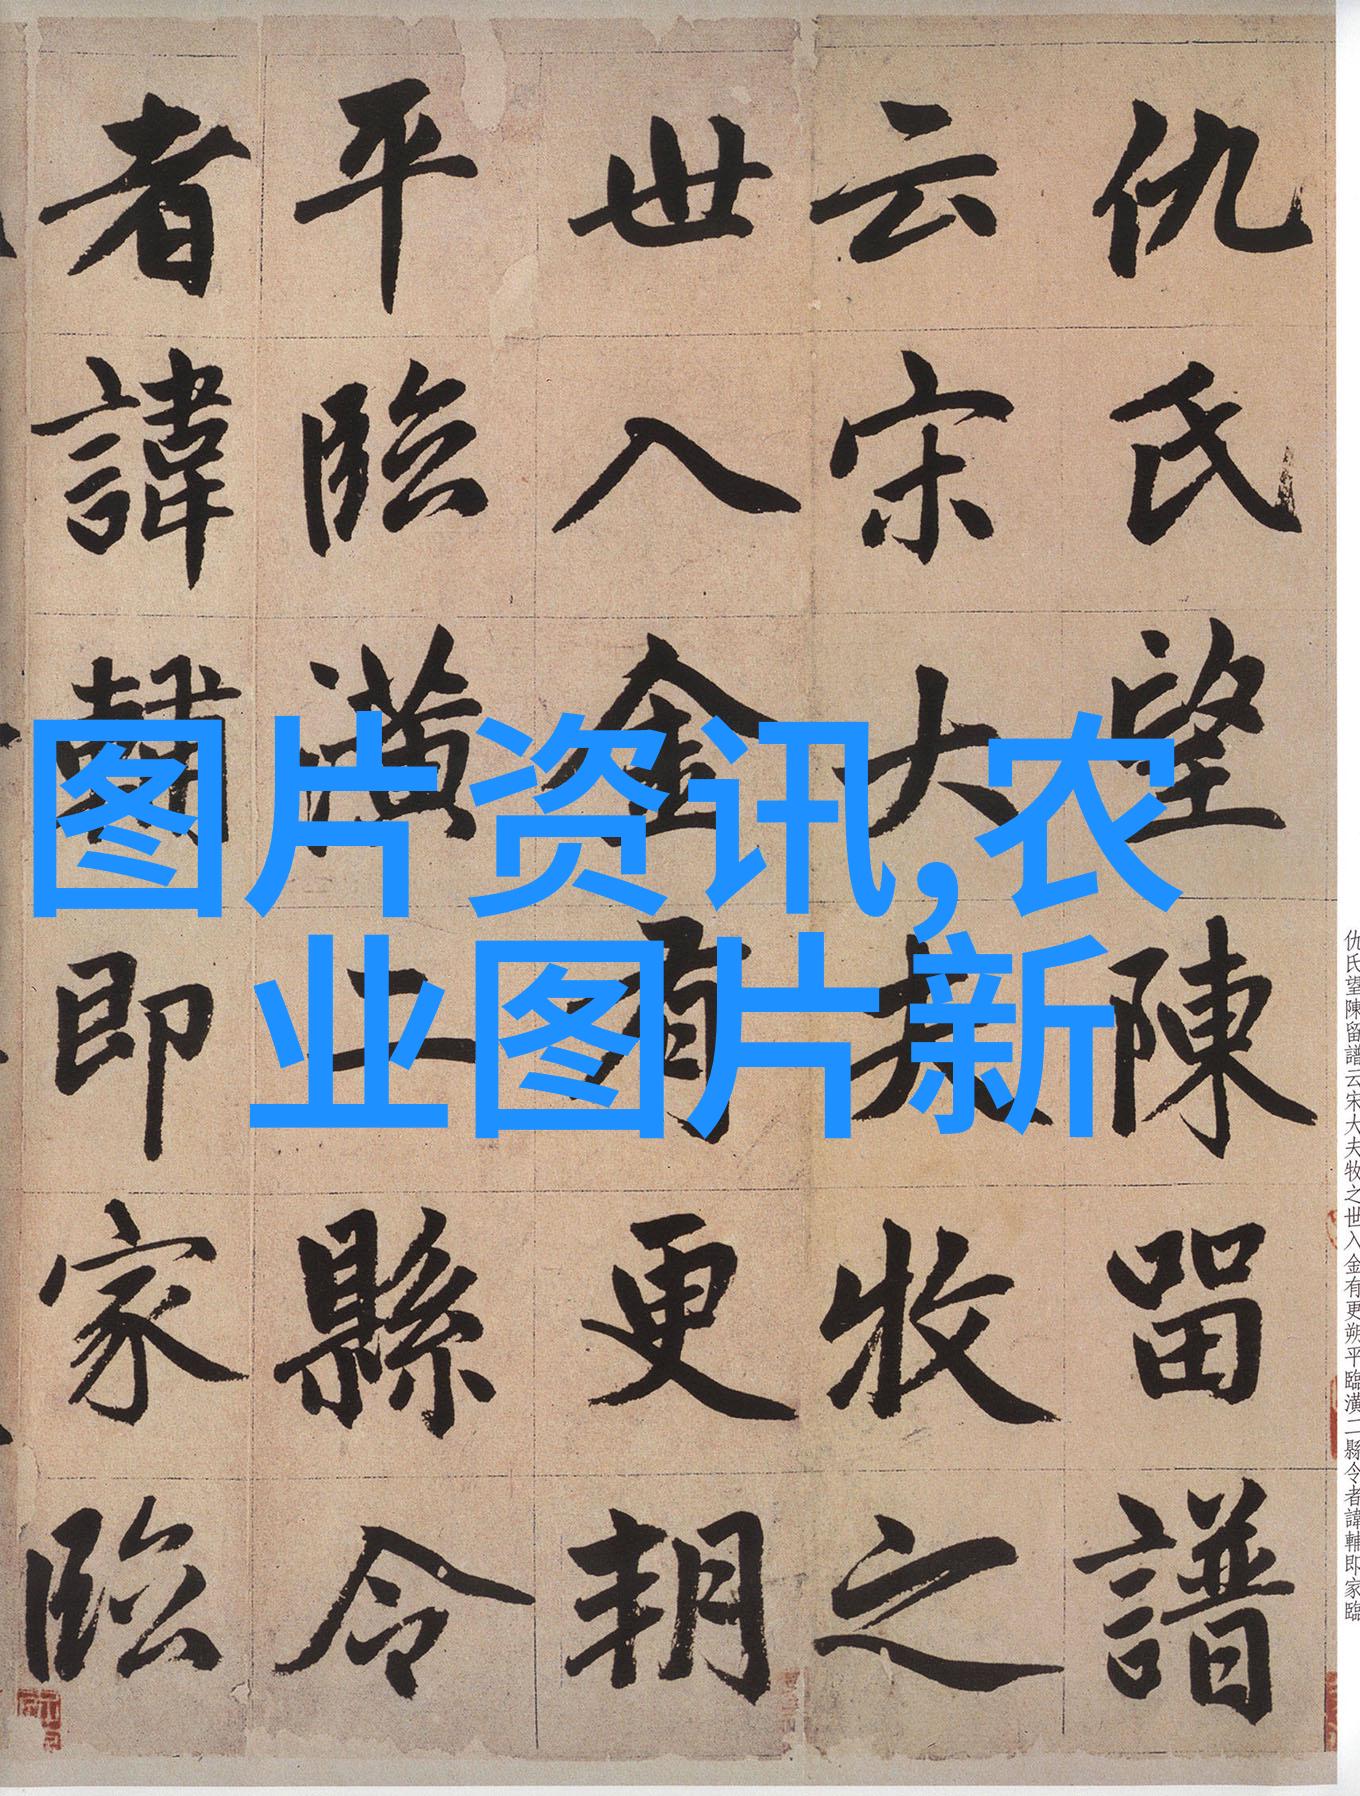 仇氏望陳留譜
云宋大夫牧之
世入金有更朔
平臨潢二縣令
者諱輔即家臨
图片资讯,农
业图片新
仇氏望陳留譜云宋大夫牧之世入金有更朔平臨潢二縣令者諱輔即家臨